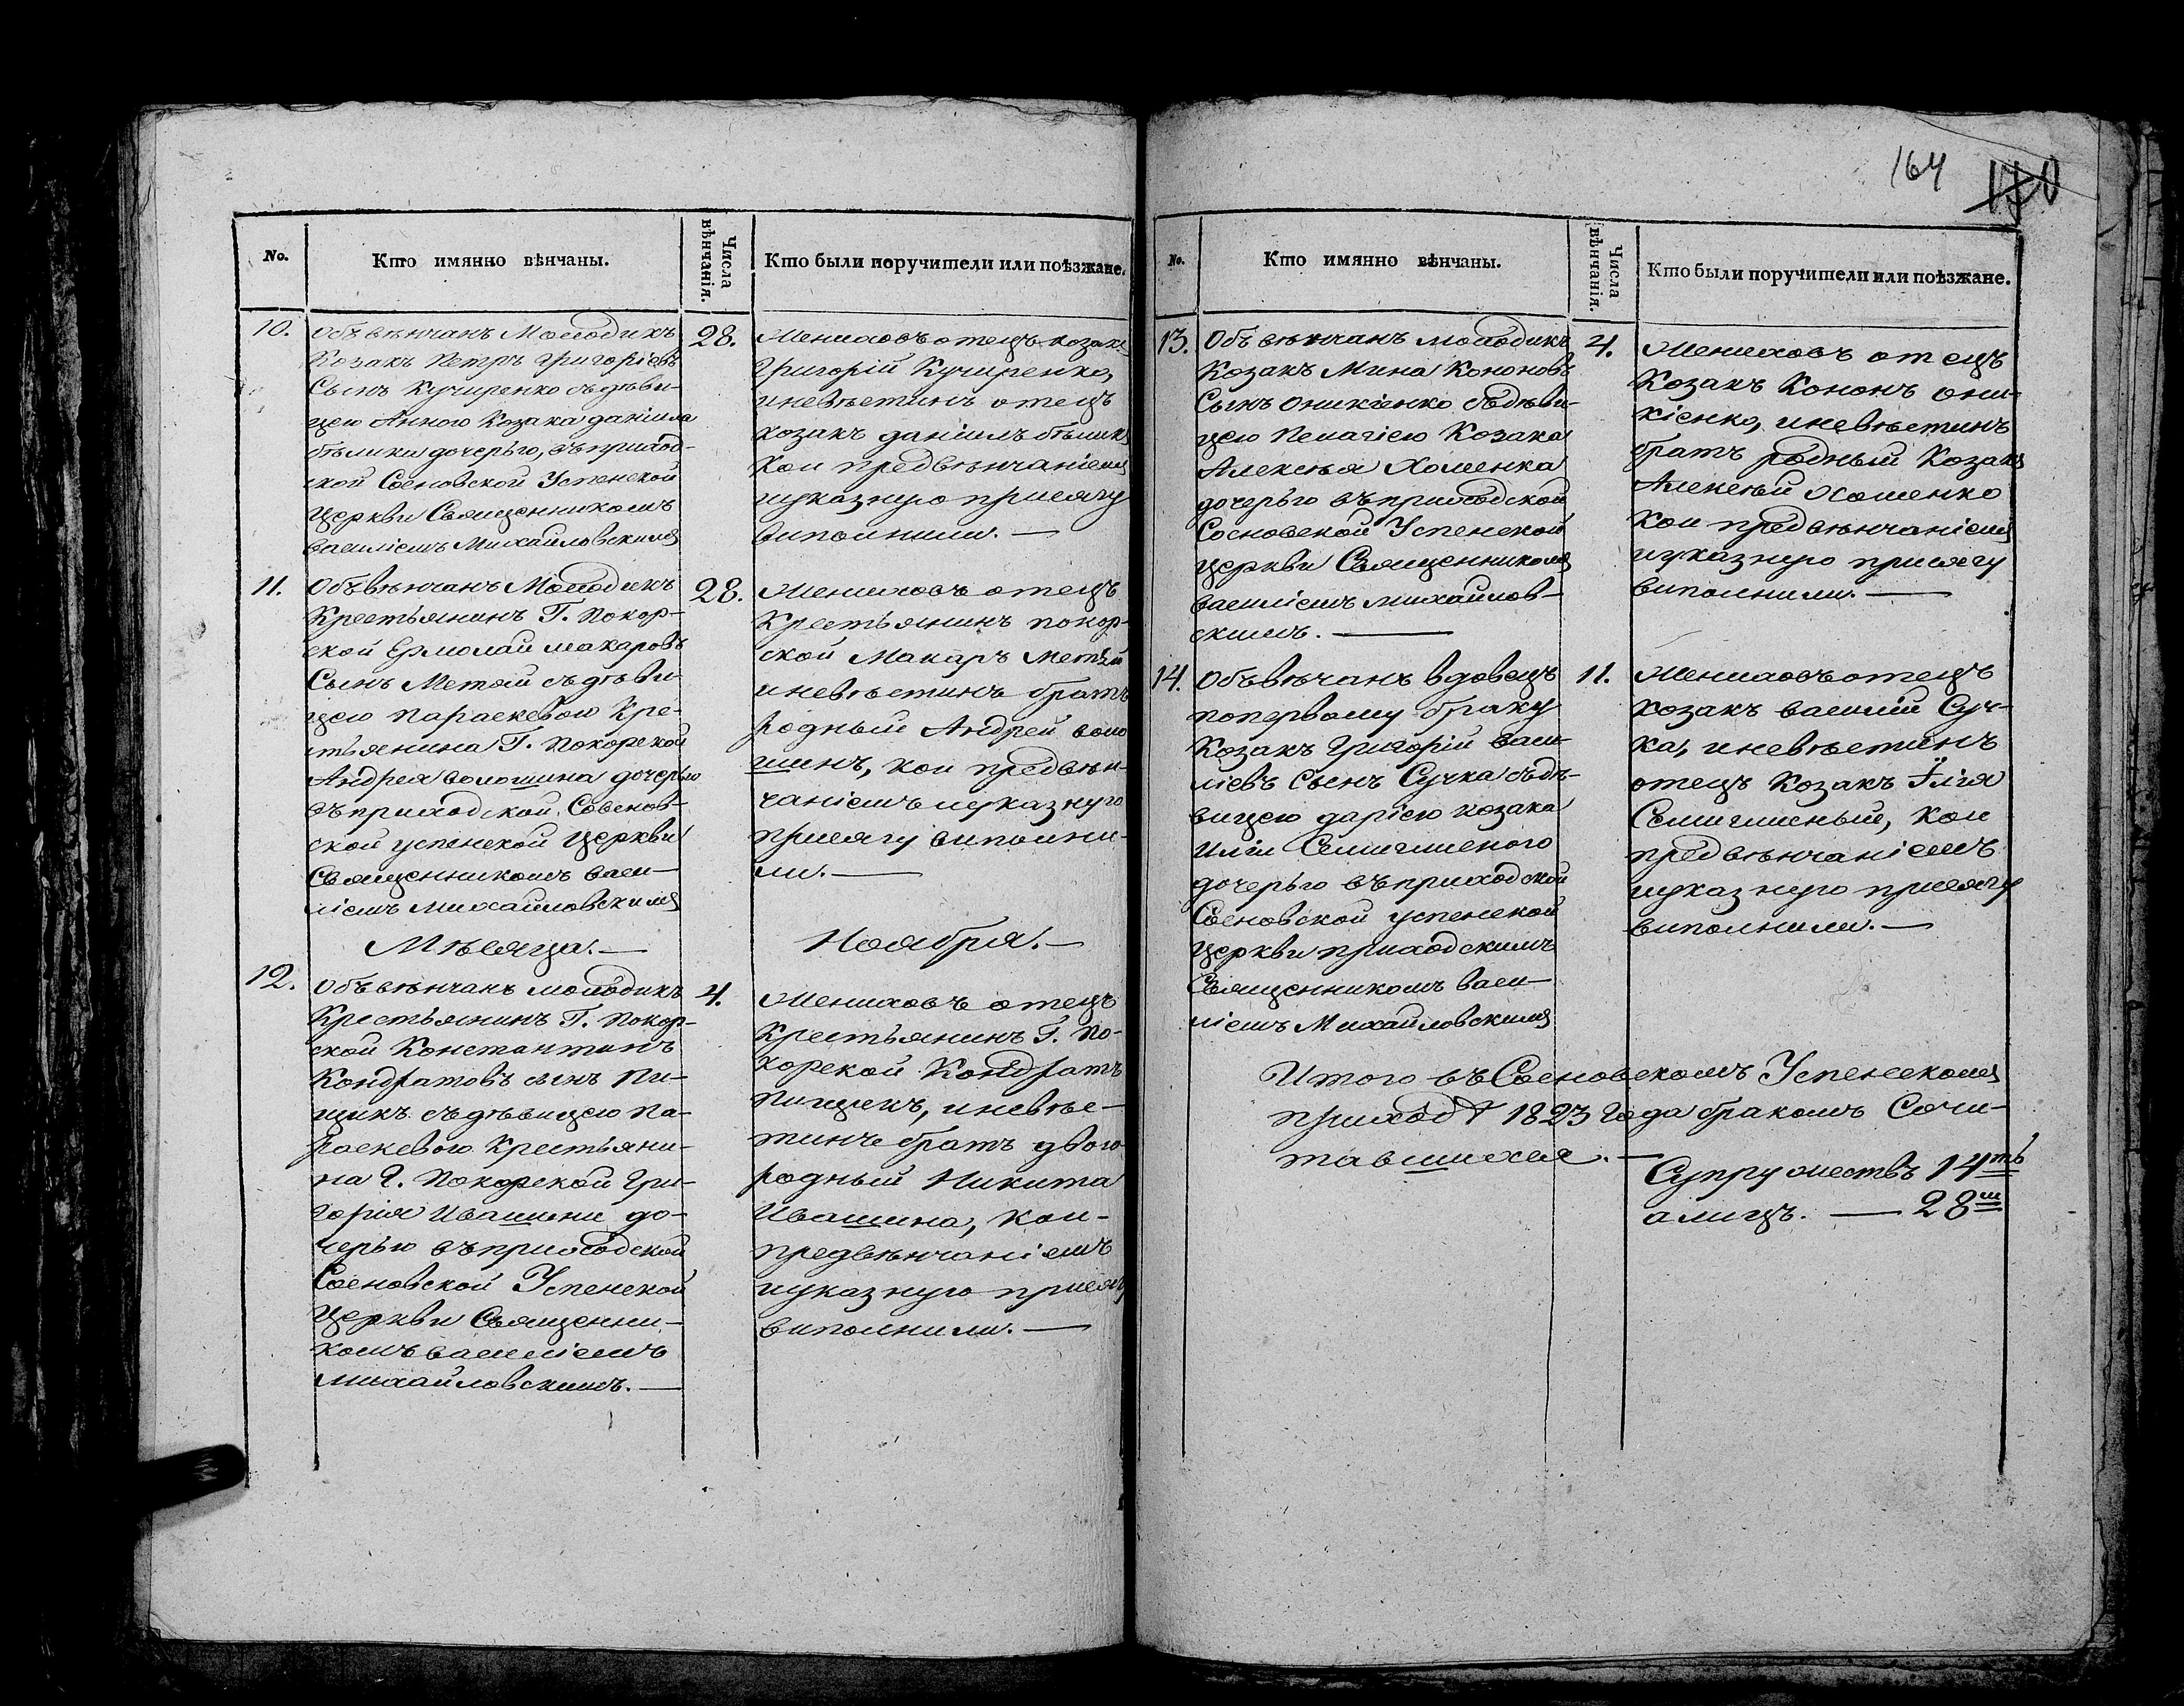 164 170
No.
Кто имянно вѣнчаны.
Числа вѣнчанія.
Кто были поручители или поѣзжане.
10.
Объвѣнчанъ Молодикъ
Козакъ Петръ Григоріевъ
Сынъ Кучиренко съдѣви-
цею Анною Козака даніила
дочерью, въприход-
ской Сосновской Успенской
Церкви Священникомъ
василіемъ Михайловскимъ
28.
Жениховъ отецъ козакъ
Григорій Кучиренко,
иневѣстинъ отецъ
козакъ даніилъ
кои предвѣнчаніемъ
иуказную присягу
виполнили. —
11.
Объвѣнчанъ Молодикъ
Крестьянинъ Г. Покор-
ской Ермолай макаровъ
Сынъ Метяй съдѣви-
цею Параскевою Кре-
стьянина Г. Покорской
Андрея волошина дочерью
въприходской Сосенов-
ской успенской Церкви
Священникомъ васи-
ліемъ Михайловскимъ
28.
Жениховъ отецъ
Крестьянинъ покор-
ской Макаръ Метяй
иневѣстинъ братъ
родный Андрей воло
шинъ, кои предвѣн-
чаніемъ иуказную
присягу виполни-
ли. —
Мѣсяца. — Ноября. —
12.
Объвѣнчанъ молодикъ
Крестьянинъ Г. Покор-
ской Константинъ
Кондратовъ сынъ Пи-
щикъ съдѣвицею Па-
раскевою Крестьяни-
на Г. Покорской Гри-
горія Ивашини до-
черью въприходской
Сосновской Успенской
Церкви Священни-
комъ василіемъ
михайловскимъ. —
4.
Жениховъ отецъ
Крестьянинъ Г. По-
корской Кондратъ
Пищикъ, иневѣс-
тинъ братъ двою
родный Никита
Ивашина, кои-
предвѣнчаніемъ
иуказную присягу
виполнили. —
No.
Кто имянно вѣнчаны.
Числа вѣнчанія.
Кто были поручители или поѣзжане.
13.
Объвѣнчанъ молодикъ
Козакъ Мина Кононовъ
Сынъ оникіенко съдѣви-
цею Пелагіею Козака
Алексѣя Хоменка
дочерью въприходской
Сосновской Успенской
церкви Священникомъ
василіемъ михайлов-
скимъ. —
4.
Жениховъ отецъ
Козакъ Кононъ они-
кіенко, иневѣстинъ
братъ родный Козакъ
Алексѣй Хоменко
кои предвѣнчаніемъ
иуказную присягу
виполнили. —
14.
Объвѣнчанъ вдовецъ
поперьвому браку
Козакъ Григорій васи-
ліевъ Сынъ Сучка съдѣ-
вицею даріею козака
Иліи
дочерью въприходской
Сосновской успенской
церкви приходскимъ
Священникомъ васи-
ліемъ Михайловскимъ
11.
Жениховъ отецъ
козакъ василій Суч-
ка, иневѣстинъ
отецъ Козакъ Ілія
кои
предвѣнчаніемъ
иуказную присягу
виполнили. —
Итого въ Сосновскомъ Успенскомъ
приходѣ 1823 года бракомъ Соче-
тавшихся. —
Супружествъ 14ть
алицъ. — 28ш